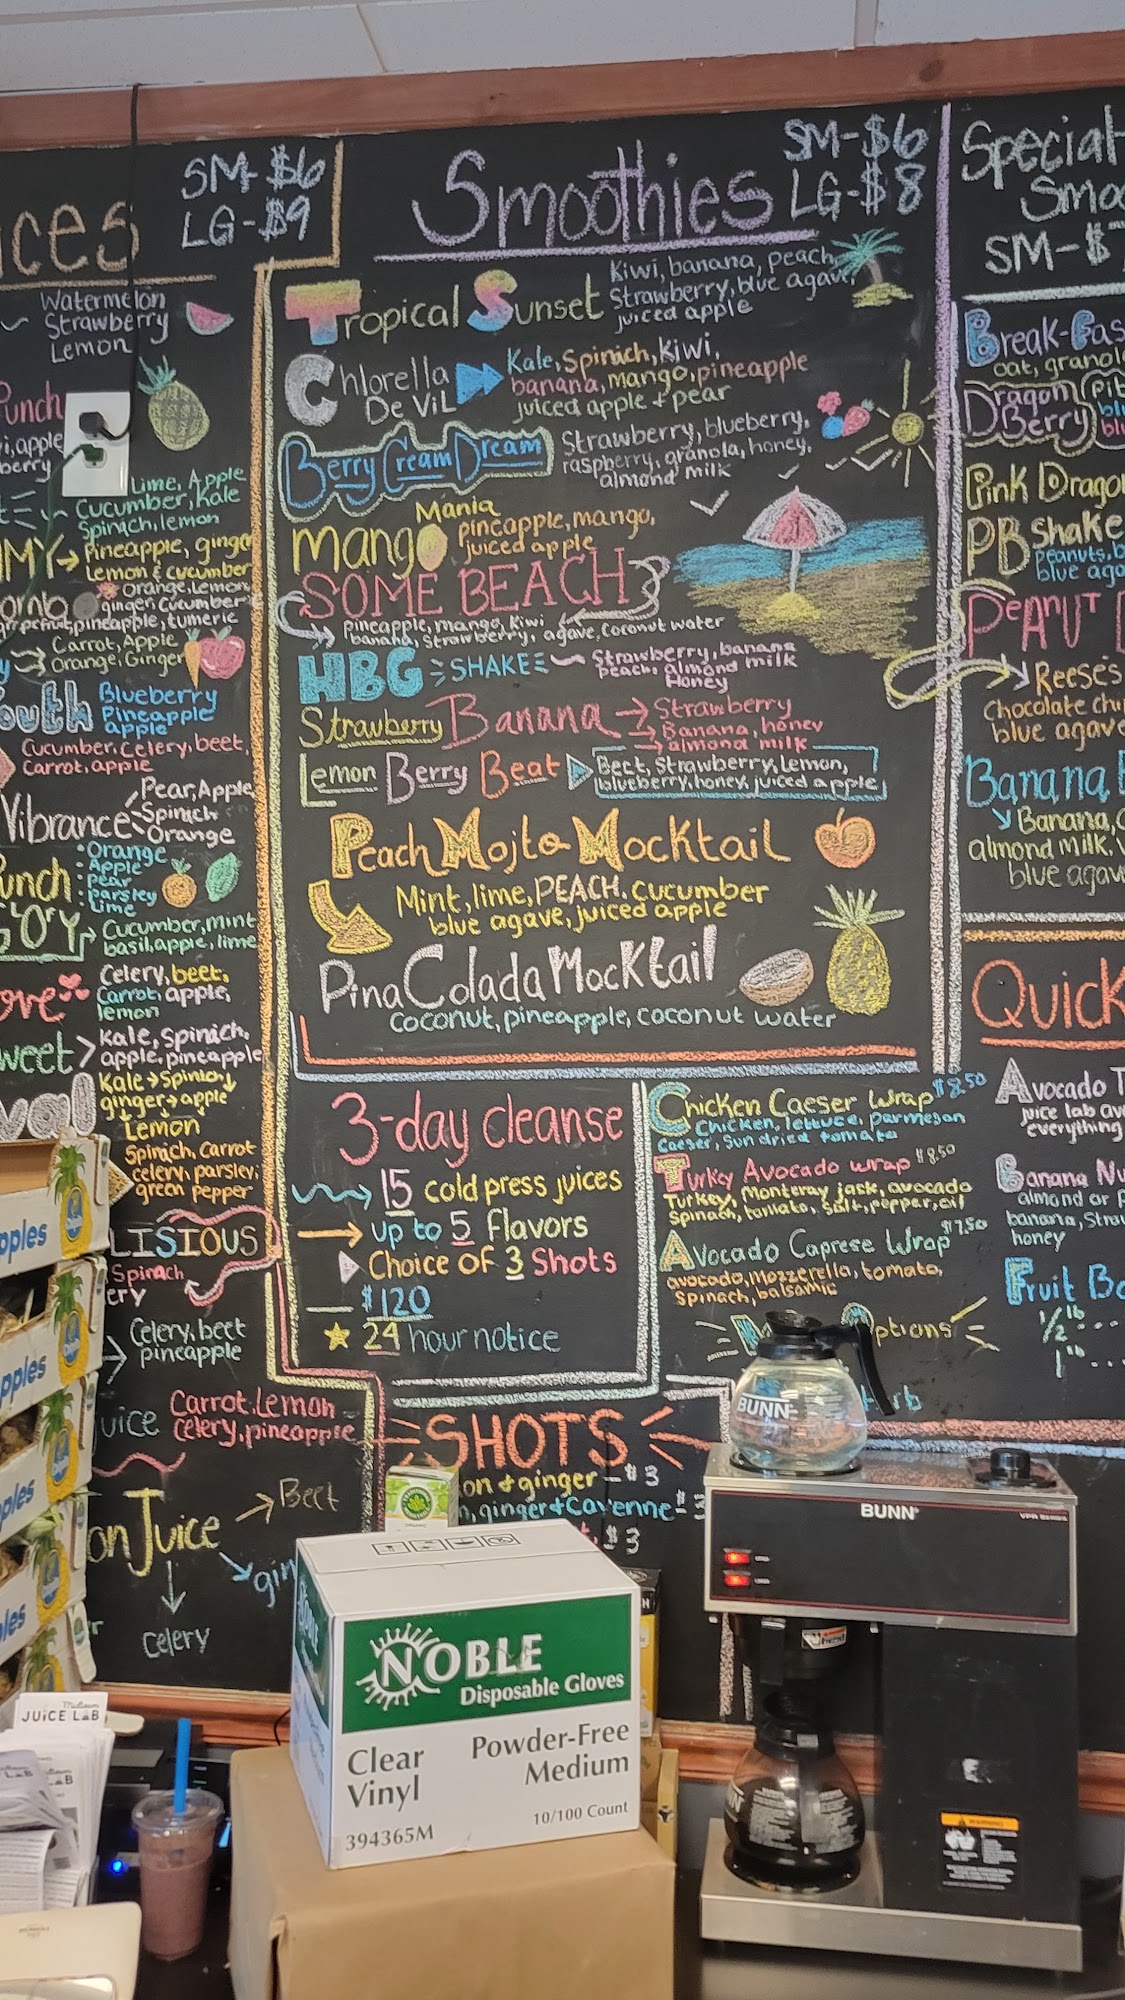 SM-$6
LG-$9
Watermelon
Strawberry
Lemon
Punch
Lime, Apple
Cucumber, Kale
Spinach, lemon
Pineapple, ginger
Lemon & cucumber
Orange, Lemon,
ginger, cucumber
pineapple, tumeric
Carrot, Apple
Orange, Ginger
Blueberry
Pineapple
apple
Cucumber, Celery, beet,
Carrot, apple
Vibrance
Pear, Apple
Spinach
Orange
Punch
Orange
Apple
Pear
parsley
Lime
Cucumber, mint
basil, apple, lime
Celery, beet,
Carrot, apple,
lemon
Kale, Spinach,
apple, pineapple
Kale → Spinach
ginger → apple
Lemon
Spinach, Carrot
celery, parsley,
green pepper
LISIOUS
Spinach
Celery, beet
pineapple
Carrot, Lemon
Celery, pineapple
Juice
Beet
Celery
Smoothies
SM-$6
LG-$8
Tropical Sunset
Kiwi, banana, peach,
Strawberry, blue agave,
juiced apple
Chlorella
De ViL
Kale, Spinich, Kiwi,
banana, mango, pineapple
juiced apple + pear
Berry Cream Dream
Strawberry, blueberry,
raspberry, granola, honey,
almond milk
mango Mania
pineapple, mango,
juiced apple
SOME BEACH
pineapple, mango, Kiwi
banana, Strawberry, agave, coconut water
HBG SHAKE
Strawberry, banana
peach, almond milk
Honey
Strawberry Banana
Strawberry
Banana, honey
almond milk
Lemon Berry Beat
Beet, Strawberry, Lemon,
blueberry, honey, juiced apple
Peach Mojto Mocktail
Mint, lime, PEACH, cucumber
blue agave, juiced apple
Pina Colada Mocktail
coconut, pineapple, coconut water
3-day cleanse
15 cold press juices
up to 5 flavors
Choice of 3 Shots
$120
24 hour notice
Chicken Caeser Wrap $8.50
Chicken, lettuce, parmesan
caeser, sun dried tomato
Turkey Avocado wrap $8.50
Turkey, Monteray jack, avocado
Spinach, tomato, salt, pepper, oil
Avocado Caprese Wrap $7.50
avocado, mozzerella, tomato,
Spinach, balsamic
SHOTS
ginger - $3
ginger + Cayenne - $3
$3
Special
SM-$
Break-Fas
oat, granola
Dragon
Berry
Pink Dragon
PB Shake
peanuts, b
blue aga
PeAnuT
Reese's
Chocolate chi
blue agave
Banana
Banana,
almond milk,
blue agave
Quick
Avocado T
juice lab av
everything
Banana Nu
almond or p
banana, Stra
honey
Fruit Bo
1/2 lb
1 lb
BUNN
BUNN®
NOBLE
Disposable Gloves
Clear
Vinyl
Powder-Free
Medium
394365M
10/100 Count
JUICE LAB
WARNING